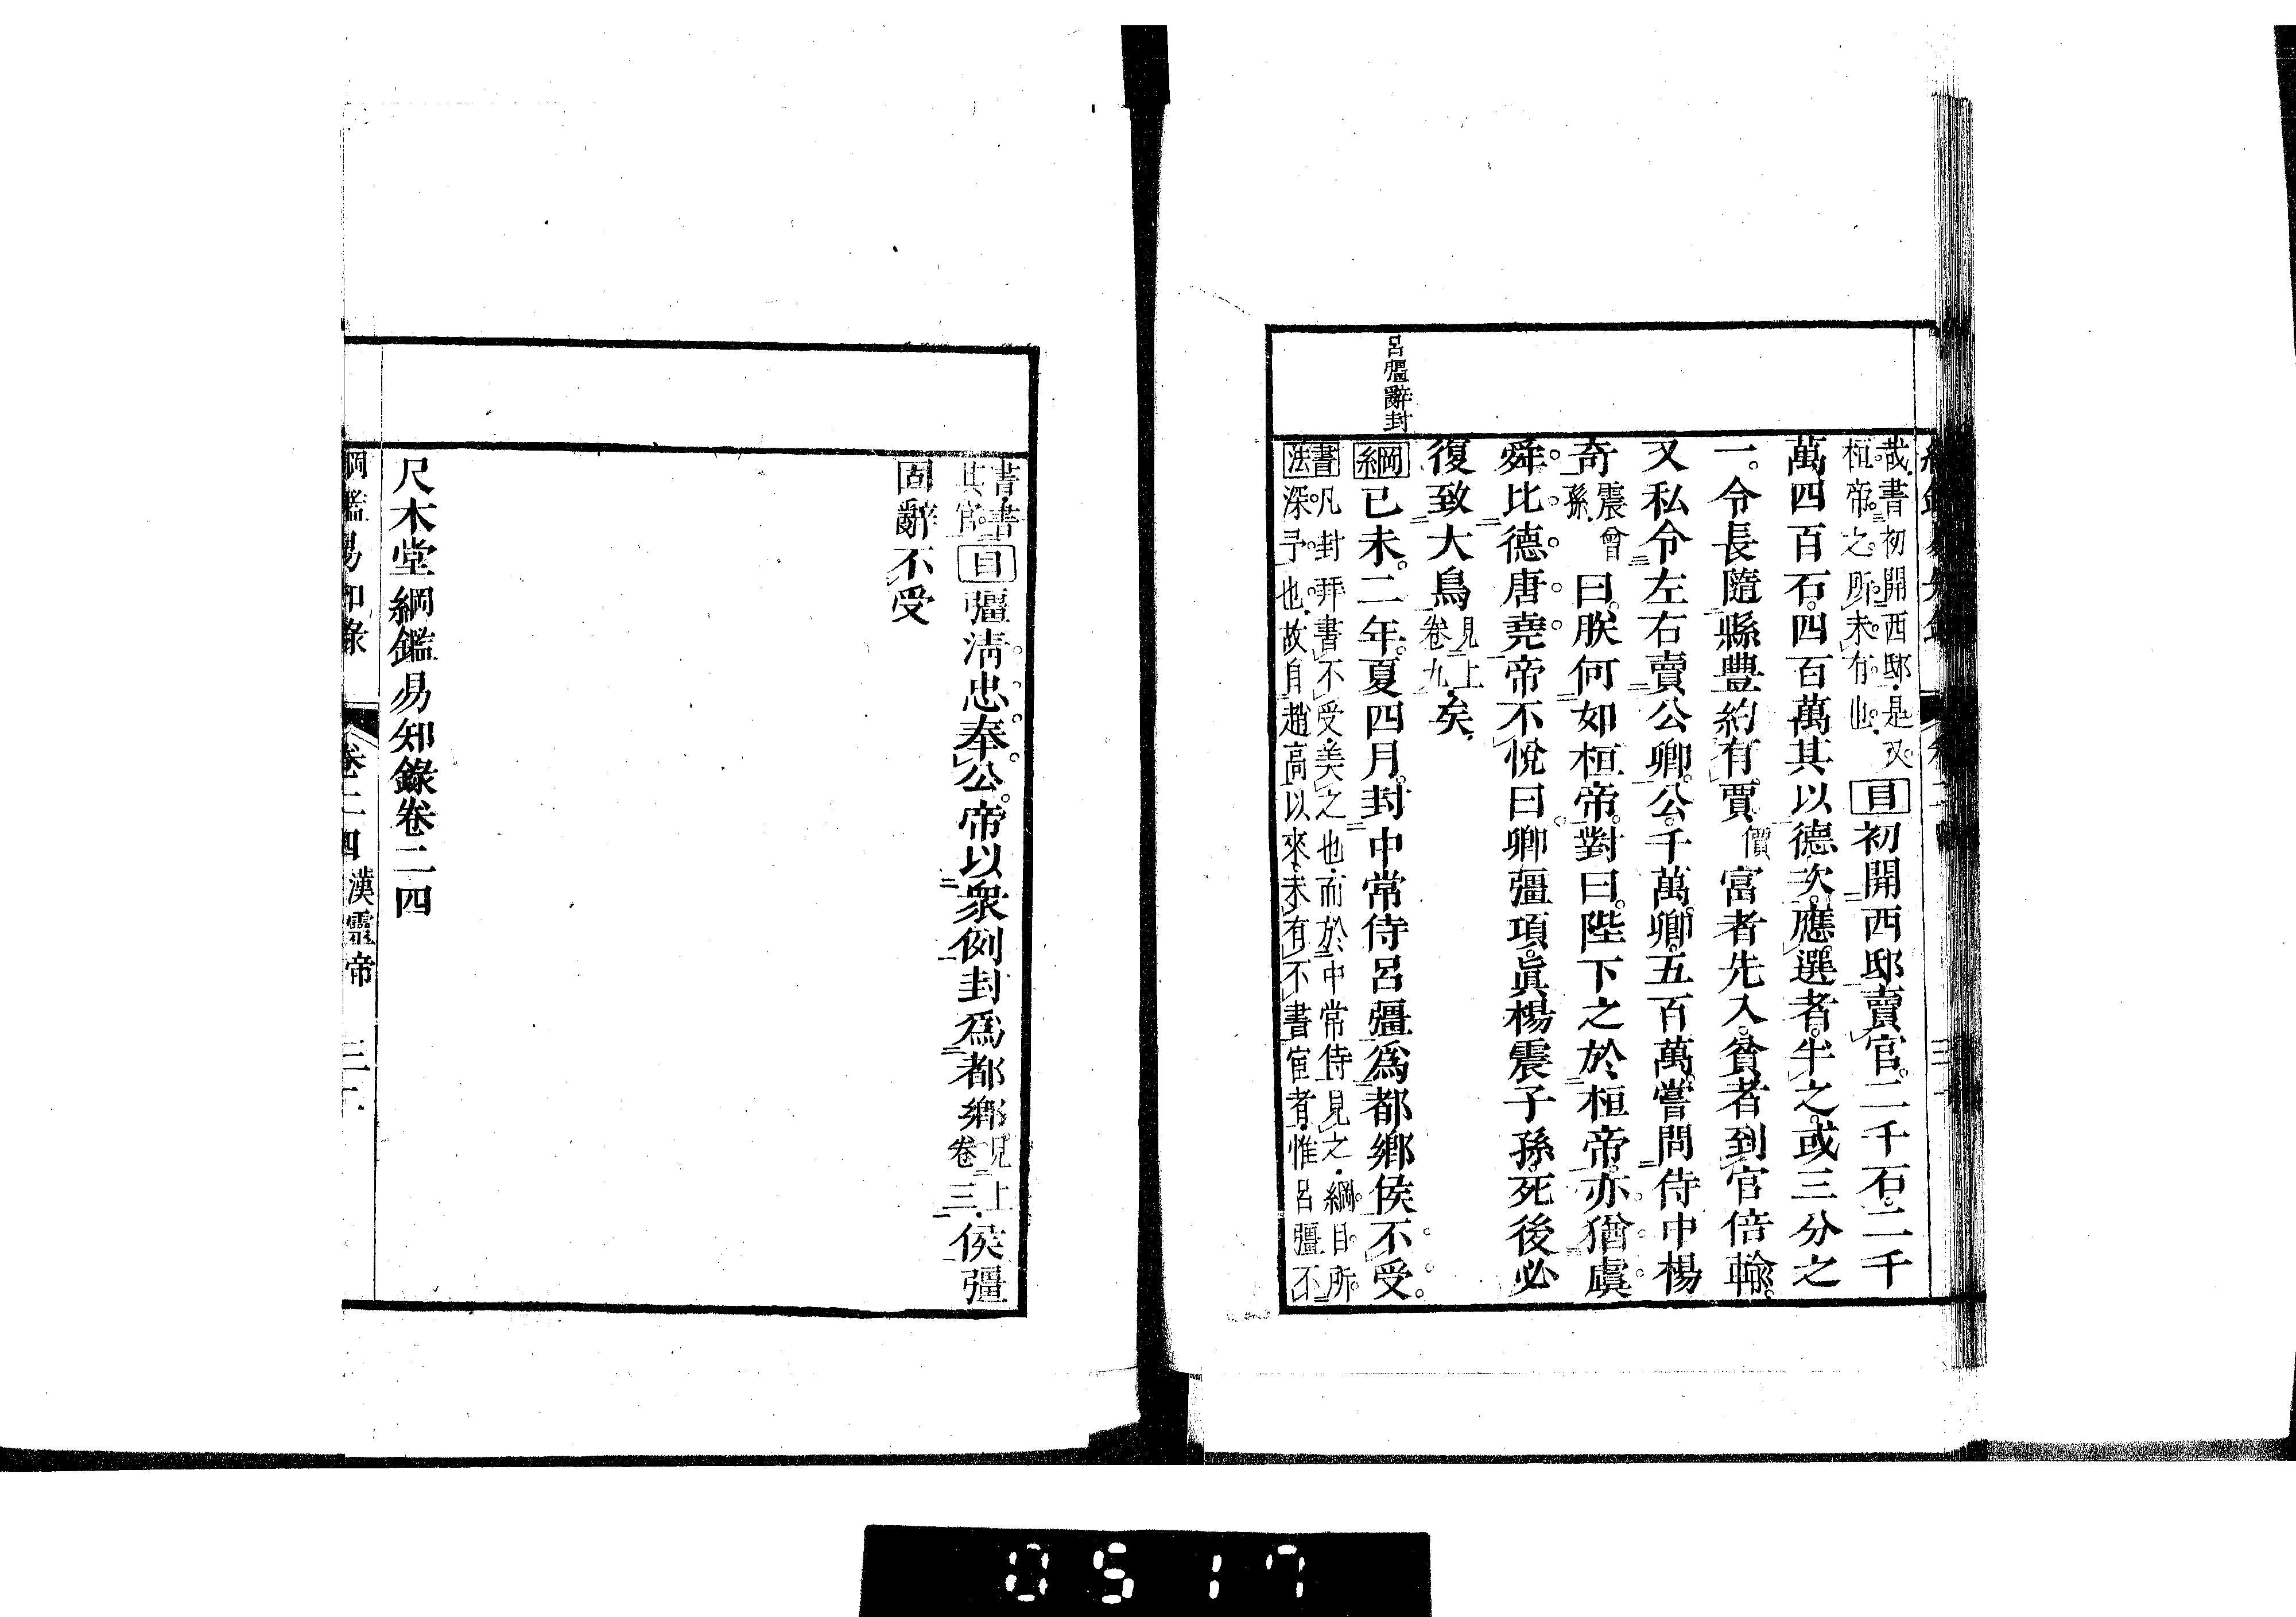 哉書初開西邸是又
桓帝之所未有也
目初開西邸賣官二千石二千
萬四百石四百萬其以德次應選者半之或三分之
一令長隨縣豐約有賈價富者先入貧者到官倍輸
又私令左右賣公卿公千萬卿五百萬嘗問侍中楊
奇震曾孫曰朕何如桓帝對曰陛下之於桓帝亦猶虞
舜比德唐堯帝不悅曰卿彊項眞楊震子孫死後必
復致大鳥見上卷九矣
呂彊辭封
綱已未二年夏四月封中常侍呂彊爲都鄉侯不受
書凡封拜書不受美之也而於中常侍見之綱目所
法深予也故自趙高以來未有不書宦者惟呂彊不
書書
其官
目彊淸忠奉公帝以衆例封爲都鄉見上卷三侯彊
固辭不受
尺木堂綱鑑易知錄卷二四
綱鑑易知錄 卷二四 漢靈帝
0517